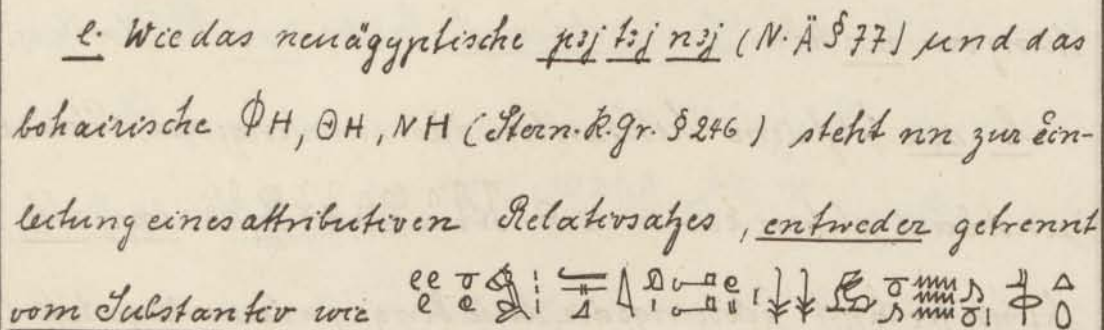 e. Wie das neuägyptische pꜣj tꜣj nꜣj (N. Ä § 77) und das
bohairische ⲪⲎ, ⲐⲎ, ⲚⲎ (Stern. K. Gr. § 246) steht nn zur Ein-
leitung eines attributiven Relativsatzes, entweder getrennt
vom Substantiv wie